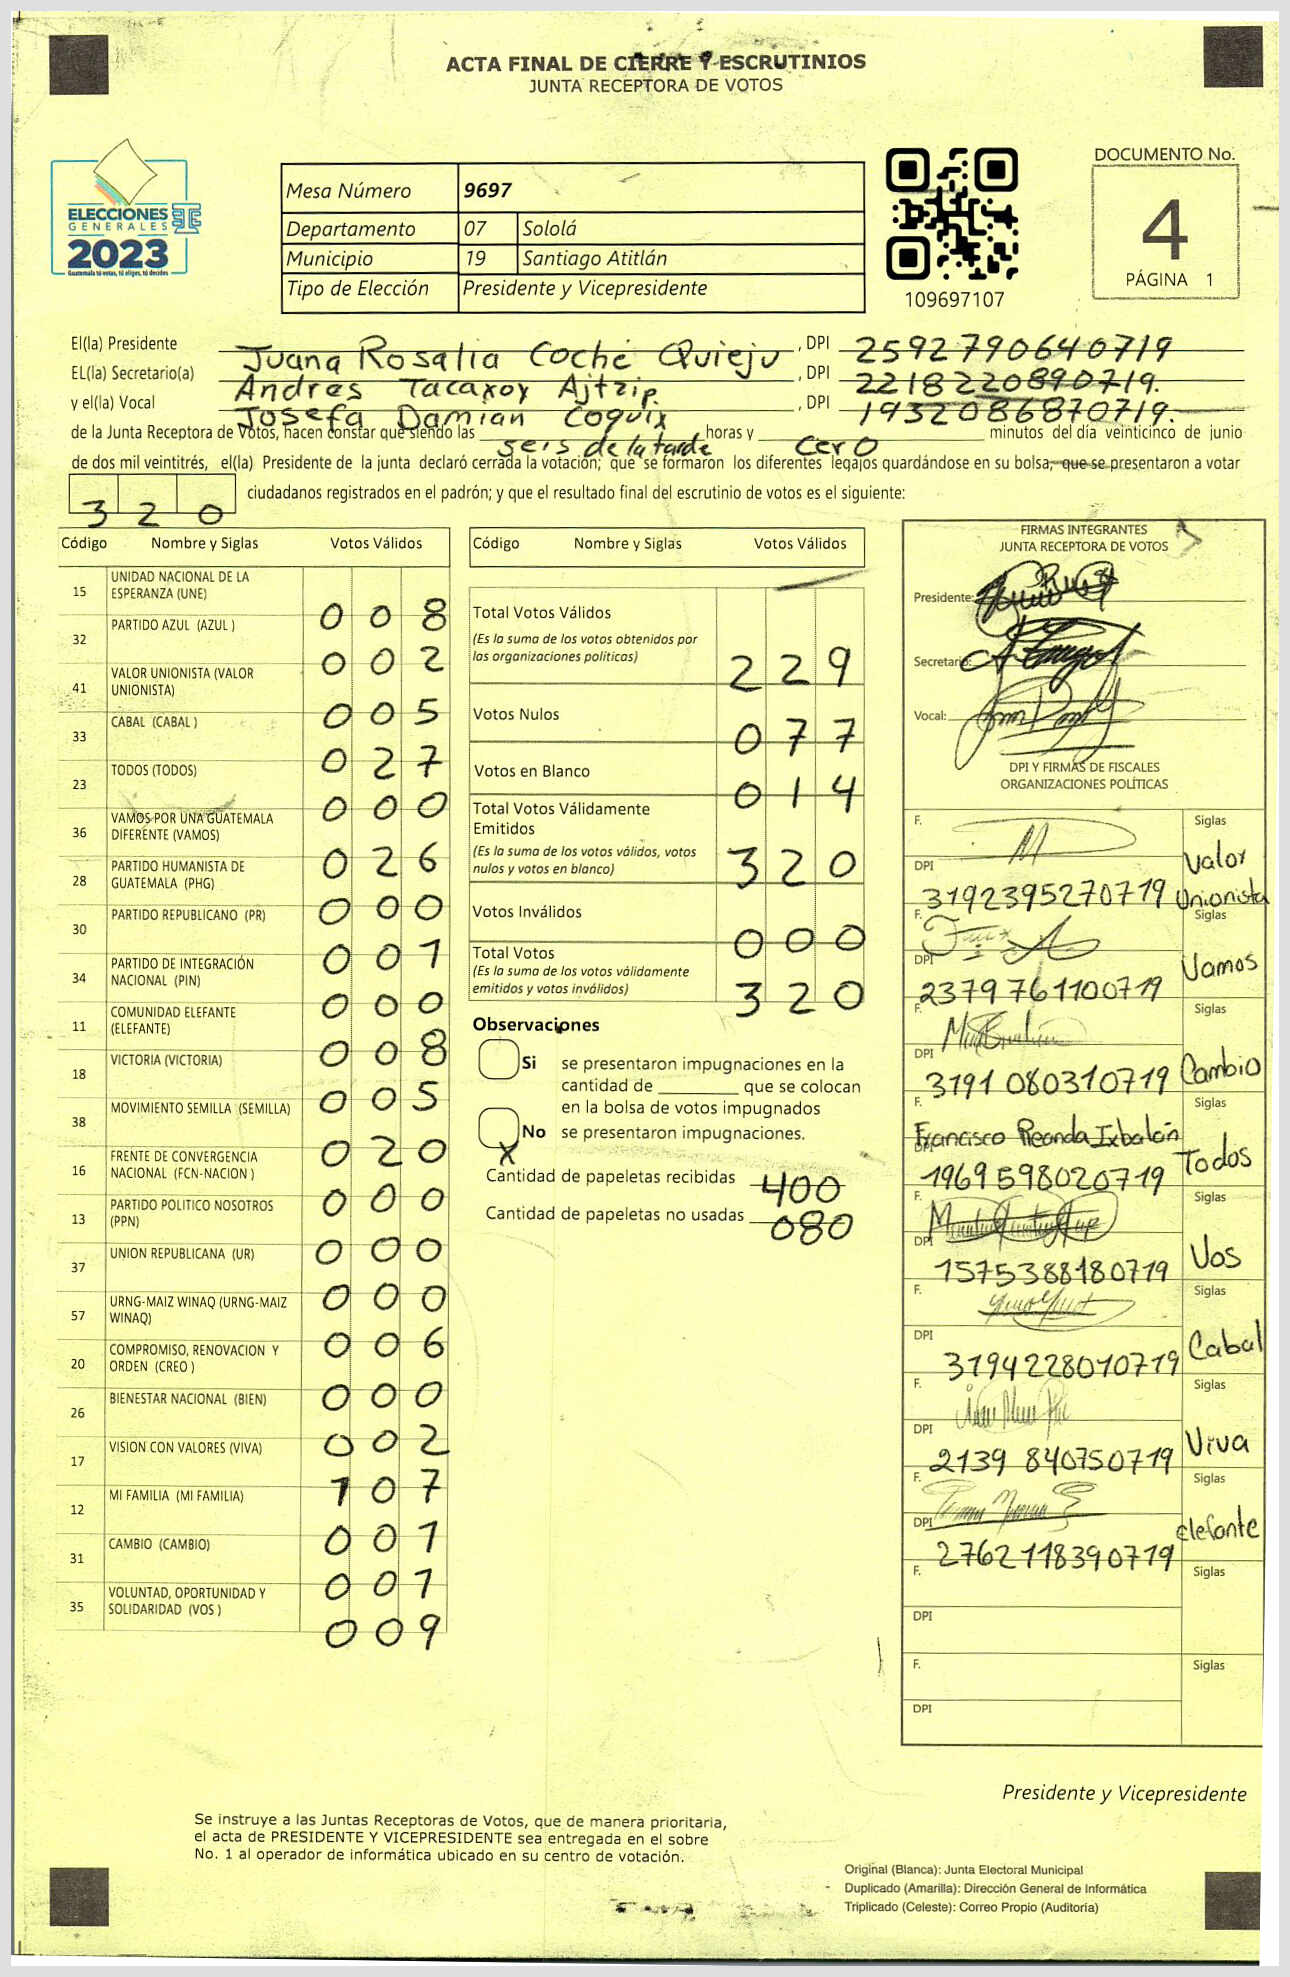 ACTA FINAL DE CIERRE Y ESCRUTINIOS
JUNTA RECEPTORA DE VOTOS
ELECCIONES
GENERALES
2023
Guatemala tú votas, tú eliges, tú decides
Mesa Número 9697
Departamento 07 Sololá
Municipio 19 Santiago Atitlán
Tipo de Elección Presidente y Vicepresidente
109697107
DOCUMENTO No.
4
PÁGINA 1
El(la) Presidente Juana Rosalia Coché Quieju , DPI 2592790640719
EL(la) Secretario(a) Andres Tacaxoy Ajtzip. , DPI 2218220890719.
y el(la) Vocal Josefa Damian Coquix , DPI 1932086870719.
de la Junta Receptora de Votos, hacen constar que siendo las seis de la tarde horas y cero minutos del día veinticinco de junio
de dos mil veintitrés, el(la) Presidente de la junta declaró cerrada la votación; que se formaron los diferentes legajos guardándose en su bolsa; que se presentaron a votar
320 ciudadanos registrados en el padrón; y que el resultado final del escrutinio de votos es el siguiente:
Código Nombre y Siglas Votos Válidos
15 UNIDAD NACIONAL DE LA ESPERANZA (UNE) 008
32 PARTIDO AZUL (AZUL ) 002
41 VALOR UNIONISTA (VALOR UNIONISTA) 005
33 CABAL (CABAL ) 027
23 TODOS (TODOS) 000
36 VAMOS POR UNA GUATEMALA DIFERENTE (VAMOS) 026
28 PARTIDO HUMANISTA DE GUATEMALA (PHG) 000
30 PARTIDO REPUBLICANO (PR) 001
34 PARTIDO DE INTEGRACIÓN NACIONAL (PIN) 000
11 COMUNIDAD ELEFANTE (ELEFANTE) 008
18 VICTORIA (VICTORIA) 005
38 MOVIMIENTO SEMILLA (SEMILLA) 020
16 FRENTE DE CONVERGENCIA NACIONAL (FCN-NACION ) 000
13 PARTIDO POLITICO NOSOTROS (PPN) 000
37 UNION REPUBLICANA (UR) 000
57 URNG-MAIZ WINAQ (URNG-MAIZ WINAQ) 006
20 COMPROMISO, RENOVACION Y ORDEN (CREO ) 000
26 BIENESTAR NACIONAL (BIEN) 002
17 VISION CON VALORES (VIVA) 107
12 MI FAMILIA (MI FAMILIA) 001
31 CAMBIO (CAMBIO) 001
35 VOLUNTAD, OPORTUNIDAD Y SOLIDARIDAD (VOS ) 009
Código Nombre y Siglas Votos Válidos
Total Votos Válidos
(Es la suma de los votos obtenidos por
las organizaciones políticas) 229
Votos Nulos 077
Votos en Blanco 014
Total Votos Válidamente
Emitidos
(Es la suma de los votos válidos, votos
nulos y votos en blanco) 320
Votos Inválidos 000
Total Votos
(Es la suma de los votos válidamente
emitidos y votos inválidos) 320
Observaciones
Si se presentaron impugnaciones en la
cantidad de ________ que se colocan
en la bolsa de votos impugnados
X No se presentaron impugnaciones.
Cantidad de papeletas recibidas 400
Cantidad de papeletas no usadas 080
FIRMAS INTEGRANTES
JUNTA RECEPTORA DE VOTOS
Presidente:
Secretario:
Vocal:
DPI Y FIRMAS DE FISCALES
ORGANIZACIONES POLÍTICAS
F. Siglas
DPI 3192395270719 Valor Unionista
F. Siglas
DPI 2379761100719 Vamos
F. Siglas
DPI 3191 080310719 Cambio
F. Francisco Reanda Ixbalán Siglas
DPI 1969598020719 Todos
F. Siglas
DPI 1575388180719 Vos
F. Siglas
DPI 3194228010719 Cabal
F. Siglas
DPI 2139 840750719 Viva
F. Siglas
DPI 2762118390719 Elefante
F. Siglas
DPI
F. Siglas
DPI
Presidente y Vicepresidente
Se instruye a las Juntas Receptoras de Votos, que de manera prioritaria,
el acta de PRESIDENTE Y VICEPRESIDENTE sea entregada en el sobre
No. 1 al operador de informática ubicado en su centro de votación.
Original (Blanca): Junta Electoral Municipal
Duplicado (Amarilla): Dirección General de Informática
Triplicado (Celeste): Correo Propio (Auditoría)